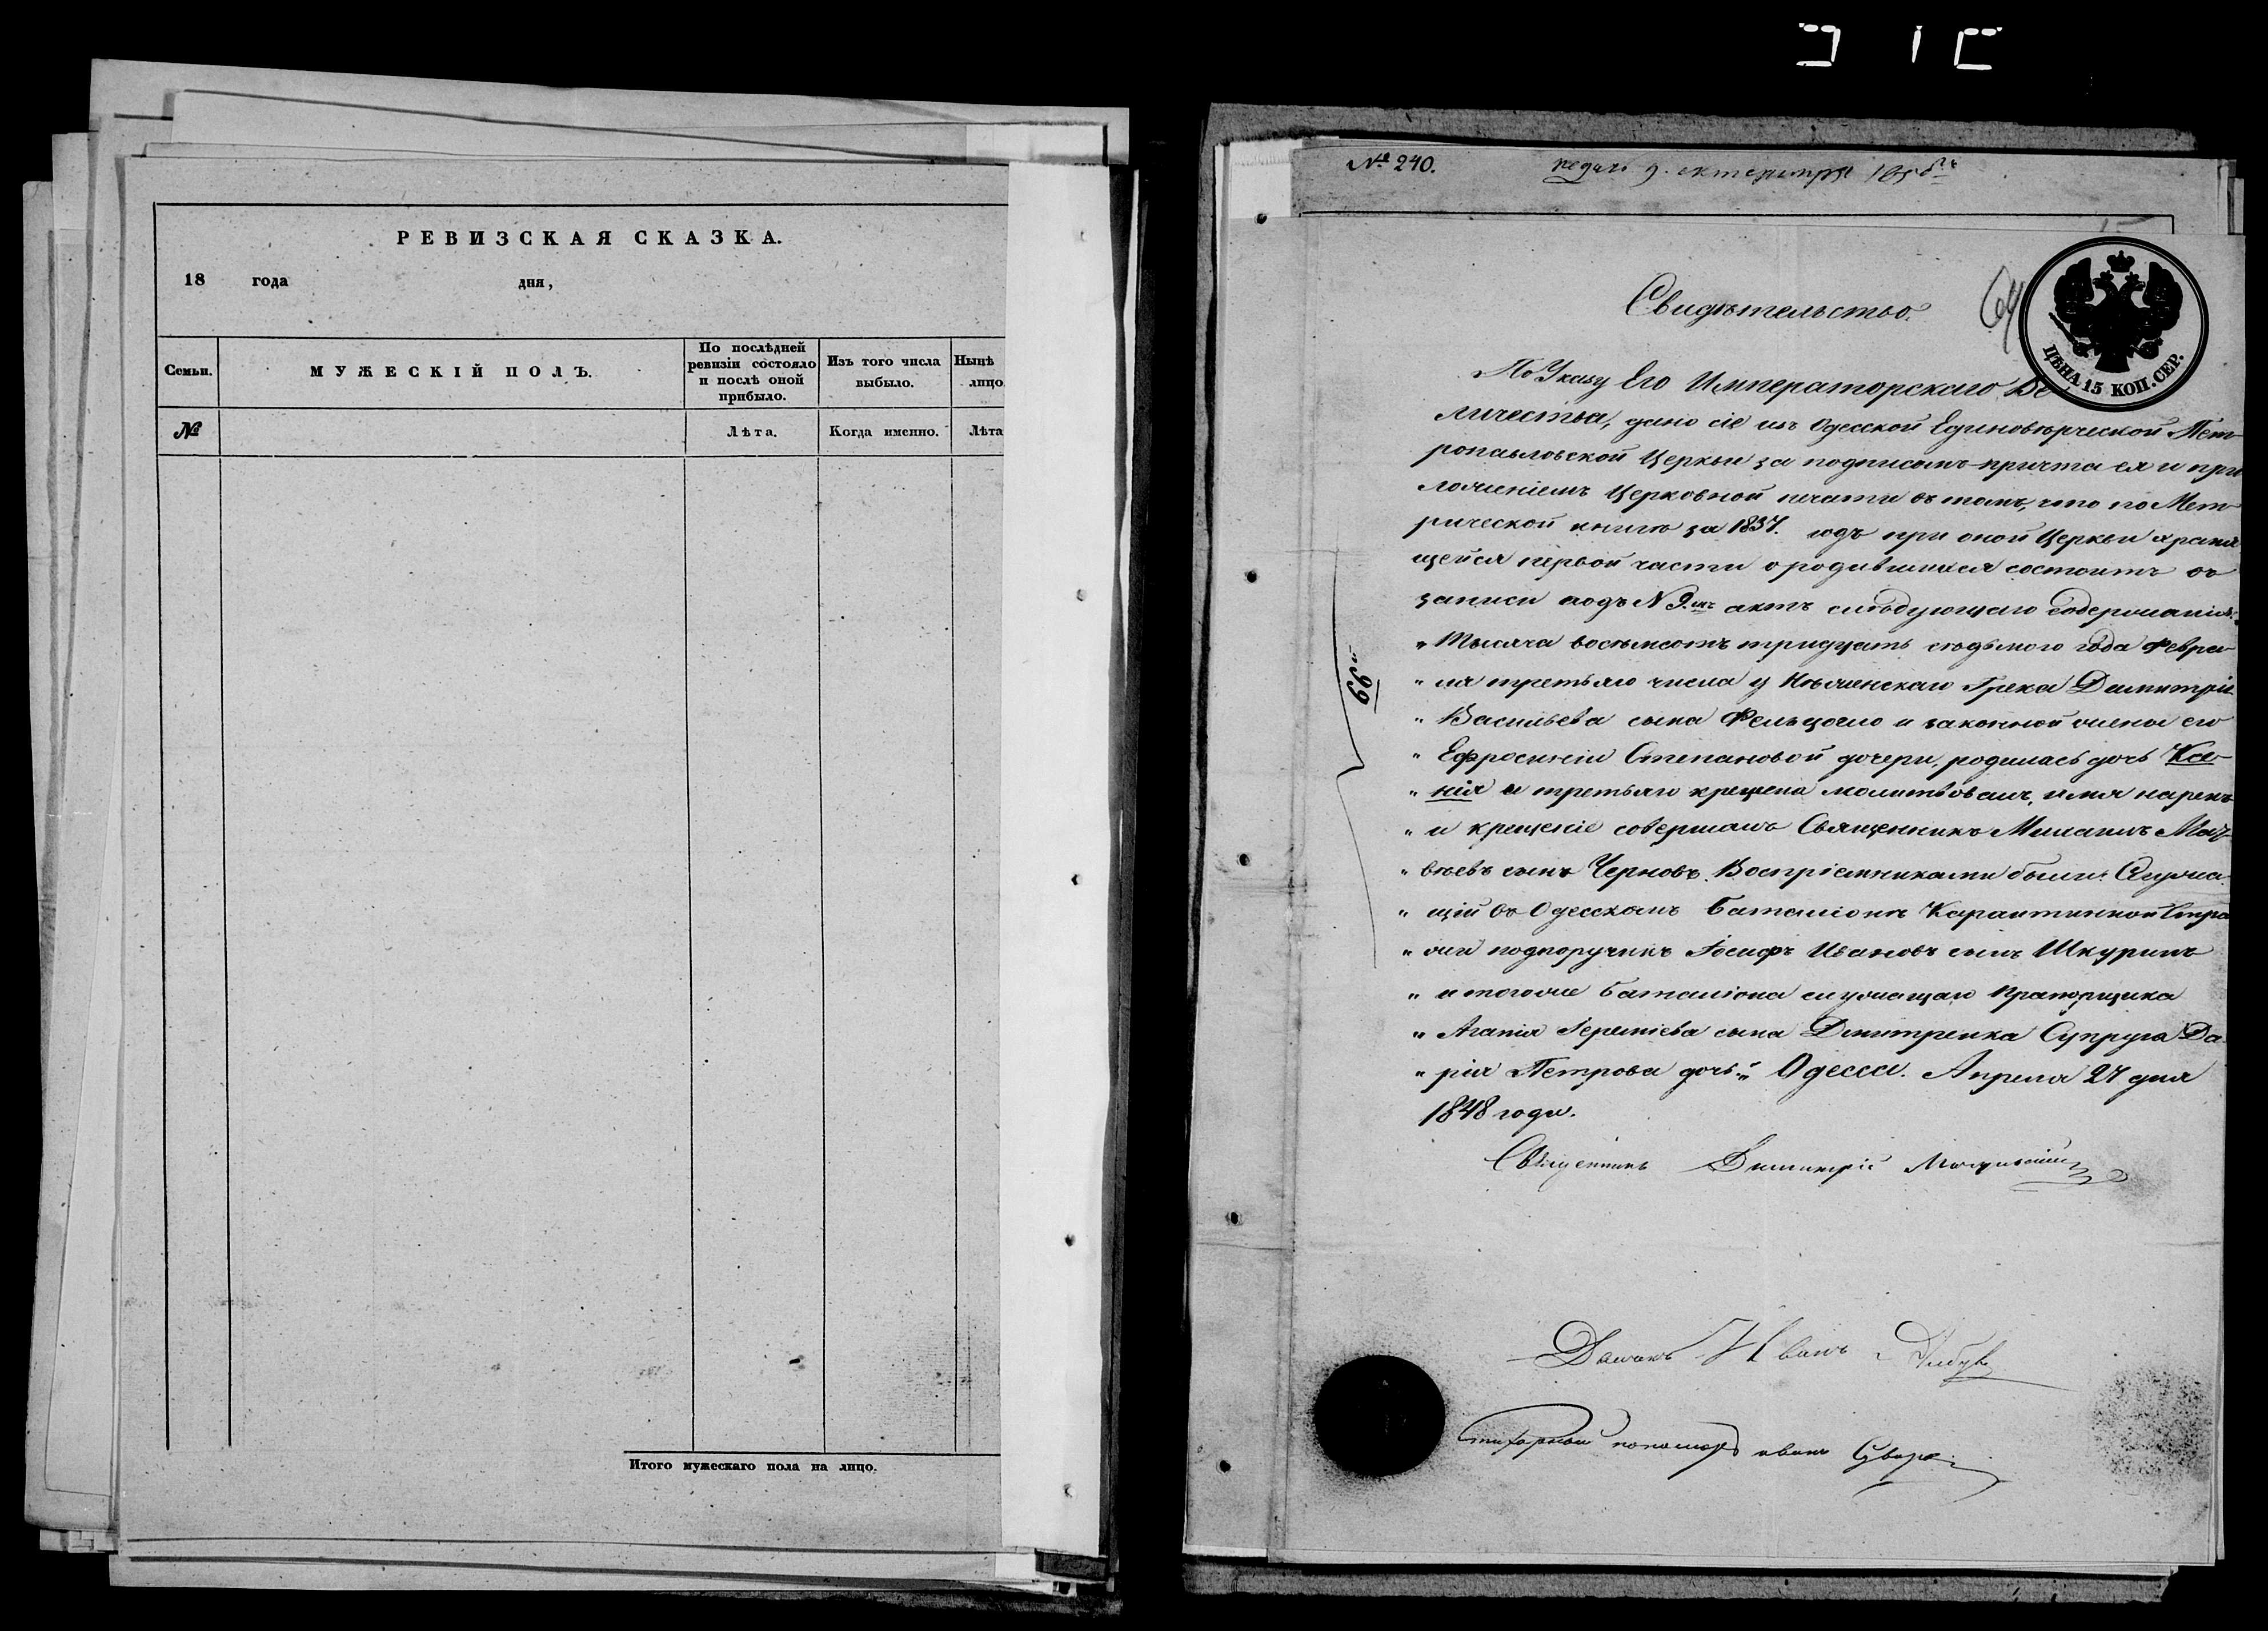 РЕВИЗСКАЯ СКАЗКА.
18 года дня,
Семьи.
МУЖЕСКІЙ ПОЛЪ.
По послѣдней ревизіи состояло и послѣ оной прибыло.
Изъ того числа выбыло.
Нынѣ лицо
№
Лѣта.
Когда именно.
Лѣта
Итого мужескаго пола на лицо.
№ 240.
64
ЦѢНА 15 КОП. СЕР.
Свидѣтельство.
По Указу Его Императорскаго Ве
личества, дано сіе изъ Одесской Единовѣрческой Пет
ропавловской Церкви за подписомъ причта ея и при
ложеніемъ Церковной печати въ томъ, что по Мет
рической книгѣ за 1837. годъ при оной Церкви храня
щейся первой части о родившихся состоитъ въ
записи подъ N 9.мъ актъ слѣдующаго содержанія:
„ Тысяча восемсотъ тридцать седьмого года Февра
„ ля третьяго числа у Нѣжинскаго Грека Димитрія
„ Васильева сына и законной жены его
„ Ефросиніи Степановой дочери, родилась дочь Ксе
„ нія и третьяго крещена молитвовалъ, имя нарекъ
„ и крещеніе совершалъ Священникъ Михаилъ Мат
„ вѣевъ сынъ Черновъ. Воспріемниками были: Служа
„ щій въ Одесскомъ Баталіонѣ Карантинной Стра
„ жи подпоручикъ Іосифъ Ивановъ сынъ Шкуринъ
„ и тогоже Баталіона служащаго Прапорщика
„ Агапія Іереміева сына Дмитренка Супруга Да
„ рія Петрова дочь." Одесса. Апреля 27 дня
1848 года.
66й
Священникъ Димитрій
Иванъ
иванъ